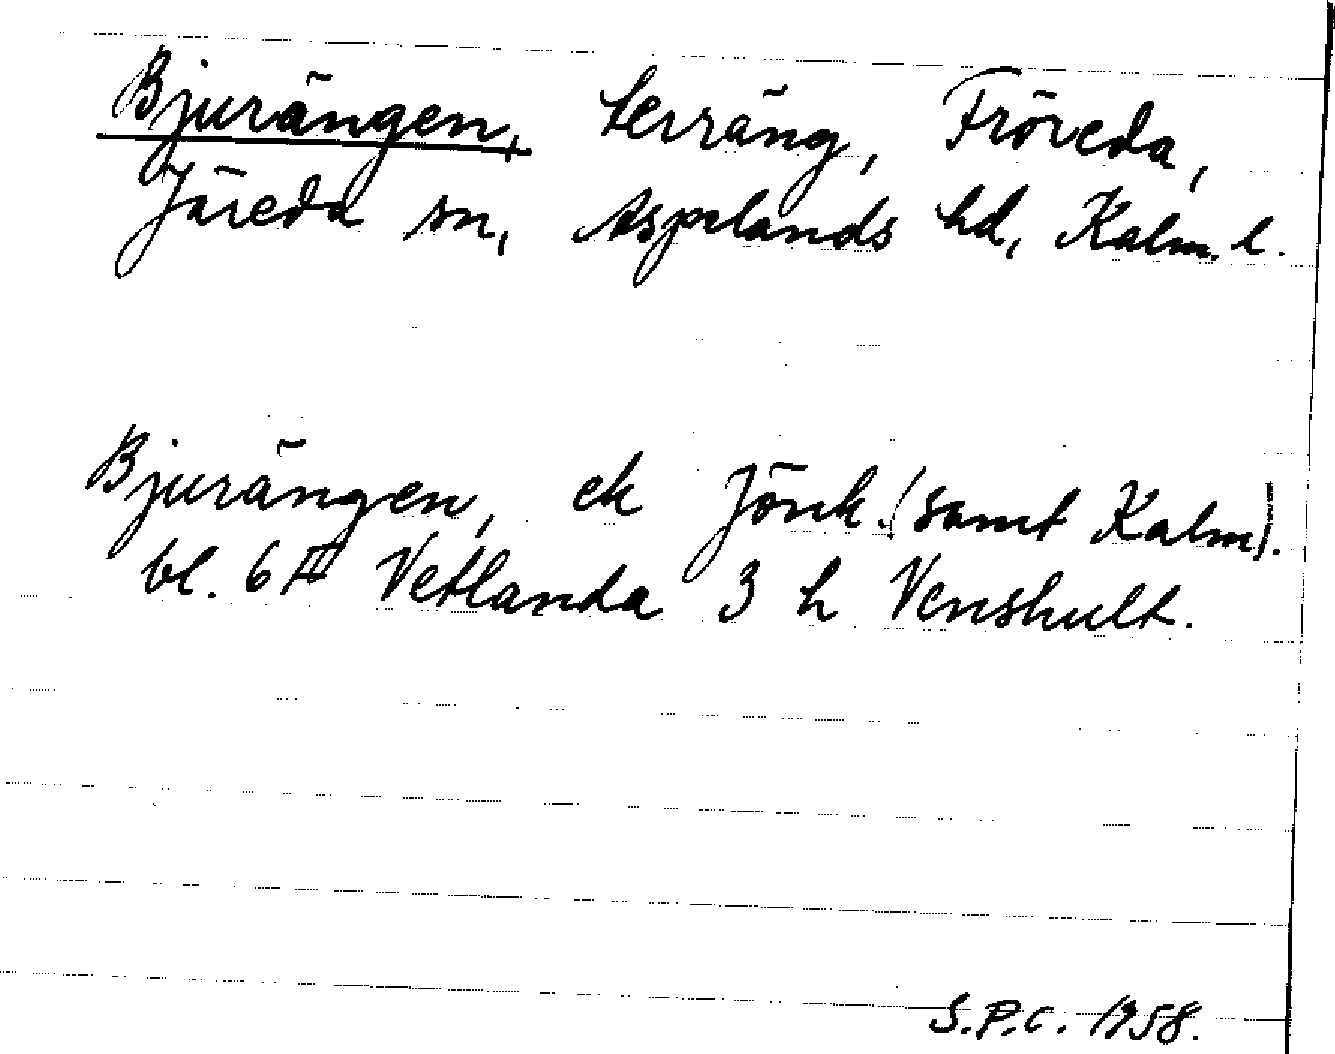 Bjurängen, terräng, Fröreda,
Järeda sn, Aspelands hd, Kalm. l.
Bjurängen, ek Jönk. (samt Kalm).
bl. 6 F Vetlanda 3 h Venshult.
S.P.C. 1958.